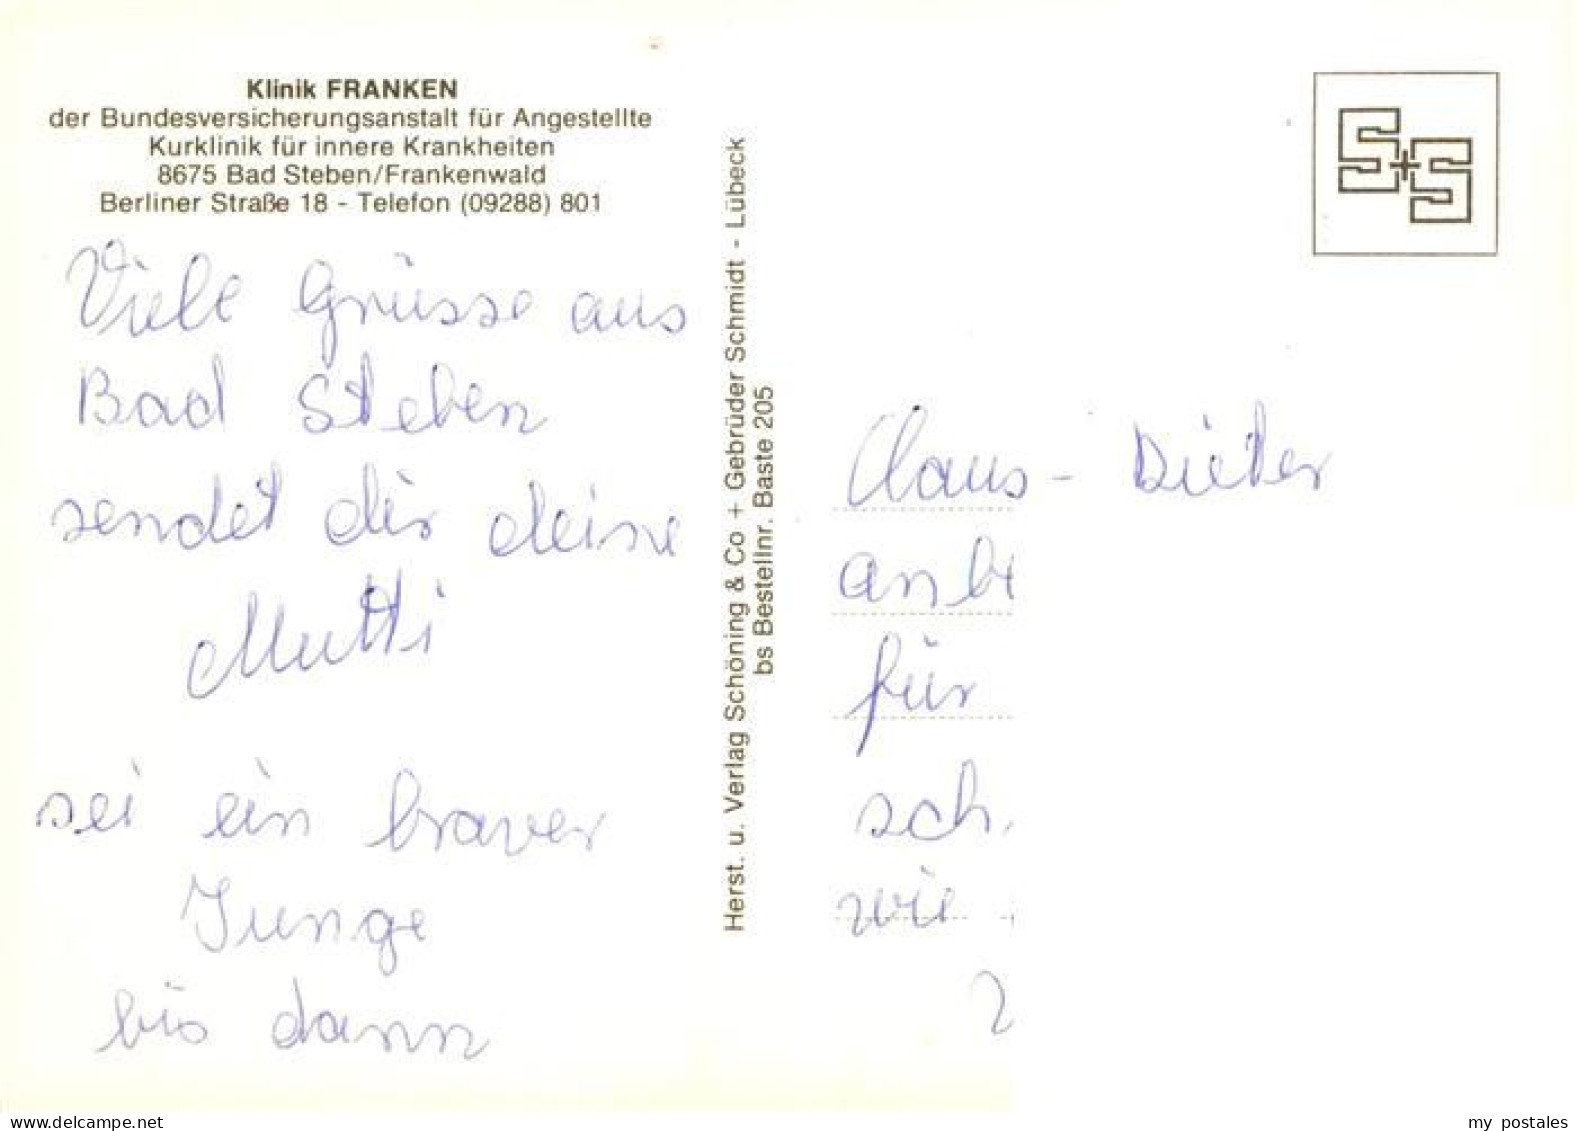 Klinik FRANKEN
der Bundesversicherungsanstalt für Angestellte
Kurklinik für innere Krankheiten
8675 Bad Steben/Frankenwald
Berliner Straße 18 - Telefon (09288) 801
Viele Grüsse aus
Bad Steben
sendet dir deine
Mutti
sei ein braver
Junge
bis dann
Herst. u. Verlag Schöning & Co + Gebrüder Schmidt - Lübeck
bs Bestellnr. Baste 205
S+S
Claus - Dieter
anb
für
sch
wie
delcampe.net
my postales